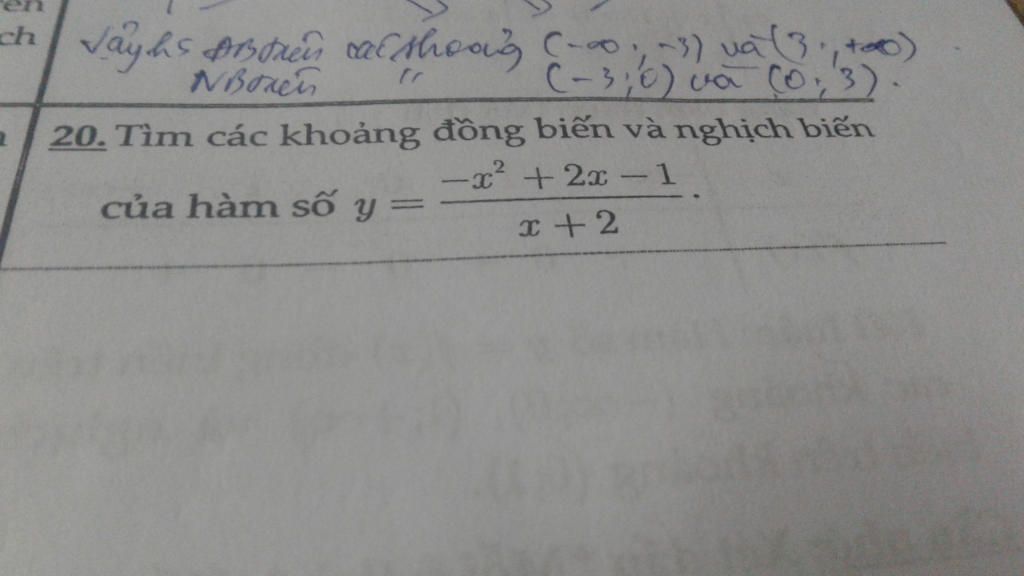 ch
Vậy hs ĐB trên các khoảng (-∞; -3) và (3; +∞)
NB trên " (-3; 0) và (0; 3).
20. Tìm các khoảng đồng biến và nghịch biến
của hàm số y = \frac{-x^2 + 2x - 1}{x + 2}.